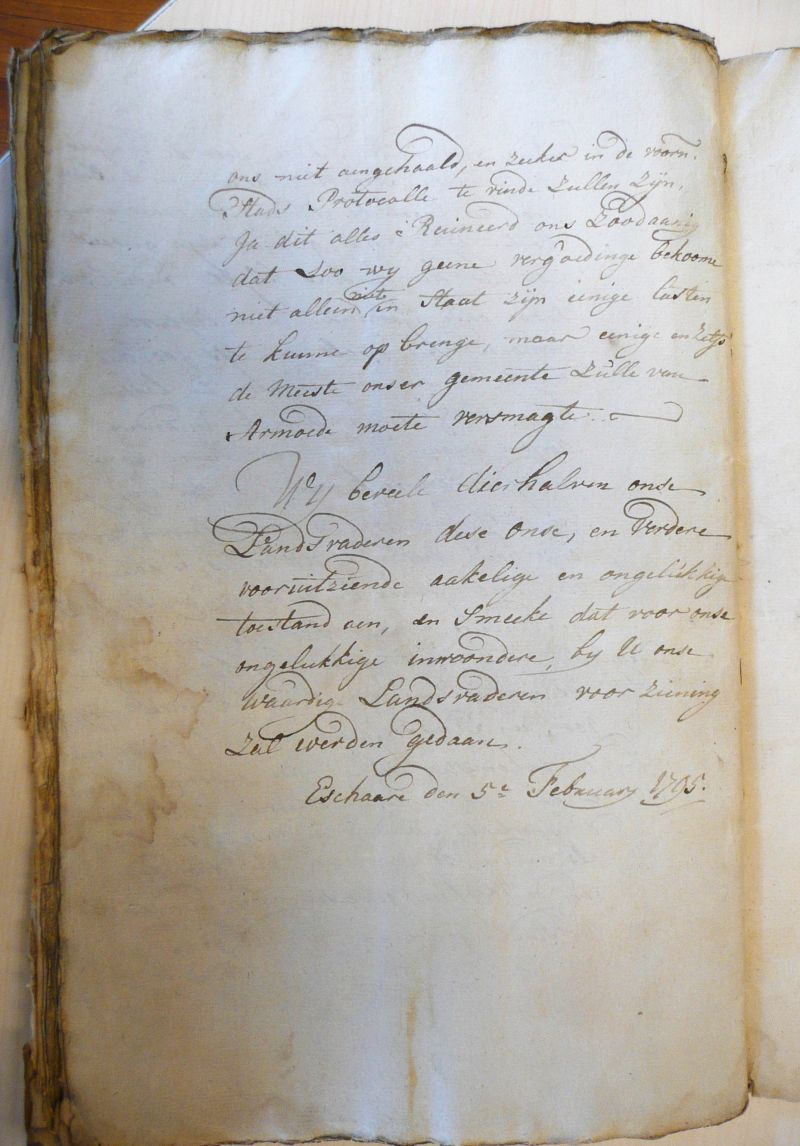 ons niet aengehaald, en zeeker in de voorn.
Stads Protocolle te vinde zullen zijn,
Ja dit alles Reuineerd ons Zoodaanig
dat Zoo wij geene vergoedinge bekoome
niet alleen niet in Staat zijn einige lasten
te kunne op brenge, maar einige en zelfs
de Meeste onser gemeente zulle van
Armoede moete versmagte.
Wij bevele dierhalven onse
Landsvaderen dese onse, en verdere
vooruitziende aakelige en ongelukkige
toestand aen, en Smeeke dat voor onse
ongelukkige inwoondere, by U onse
waardige Landsvaderen voorziening
zal werden gedaan.
Eschaare den 5e February 1795.